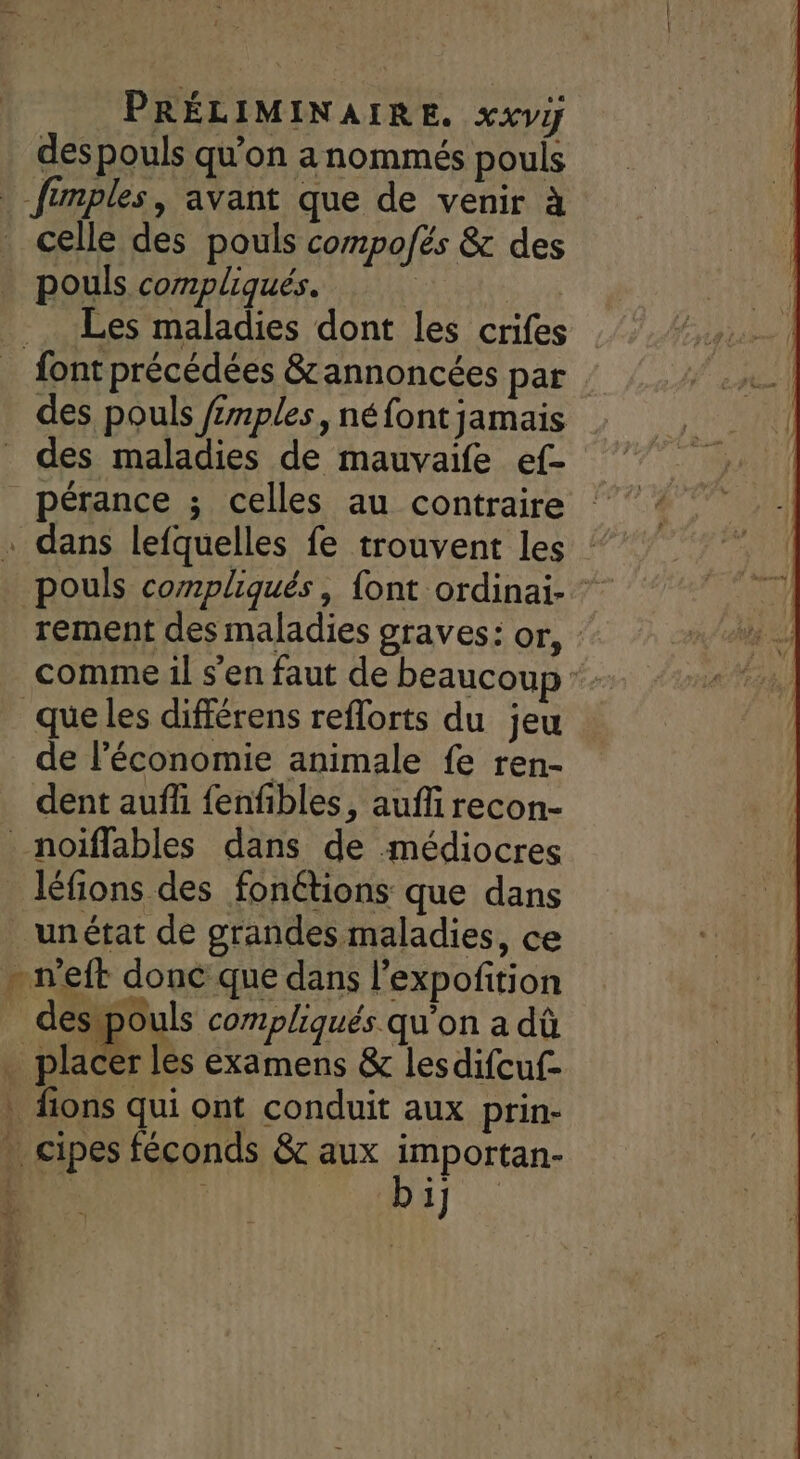 PRÉLIMINAIRE. xxvij
des pouls qu'on a nommés pouls
ſimples, avant que de venir à
celle des pouls compoſés & des
pouls compliqués.
Les maladies dont les criſes
ſont précédées & annoncées par
des pouls ſimples, ne ſont jamais
des maladies de mauvaiſe eſ-
pérance ; celles au contraire
dans leſquelles ſe trouvent les
pouls compliqués, ſont ordinai-
rement des maladies graves : or,
comme il s'en faut de beaucoup
que les différens reſſorts du jeu
de l'économie animale ſe ren-
dent auſſi ſenſibles, auſſi recon-
noiſſables dans de médiocres
léſions des fonctions que dans
un état de grandes maladies, ce
n'eſt donc que dans l'expoſition
des pouls compliqués qu'on a dû
placer les examens & les diſcuſ-
ſions qui ont conduit aux prin-
cipes féconds & aux importan-
b ij